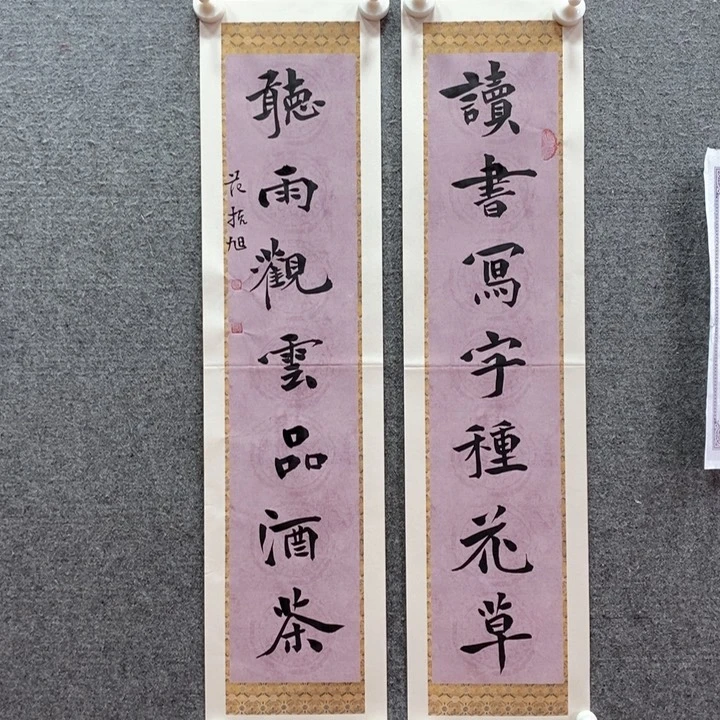 讀書寫字種花草
聽雨觀雲品酒茶
范振旭